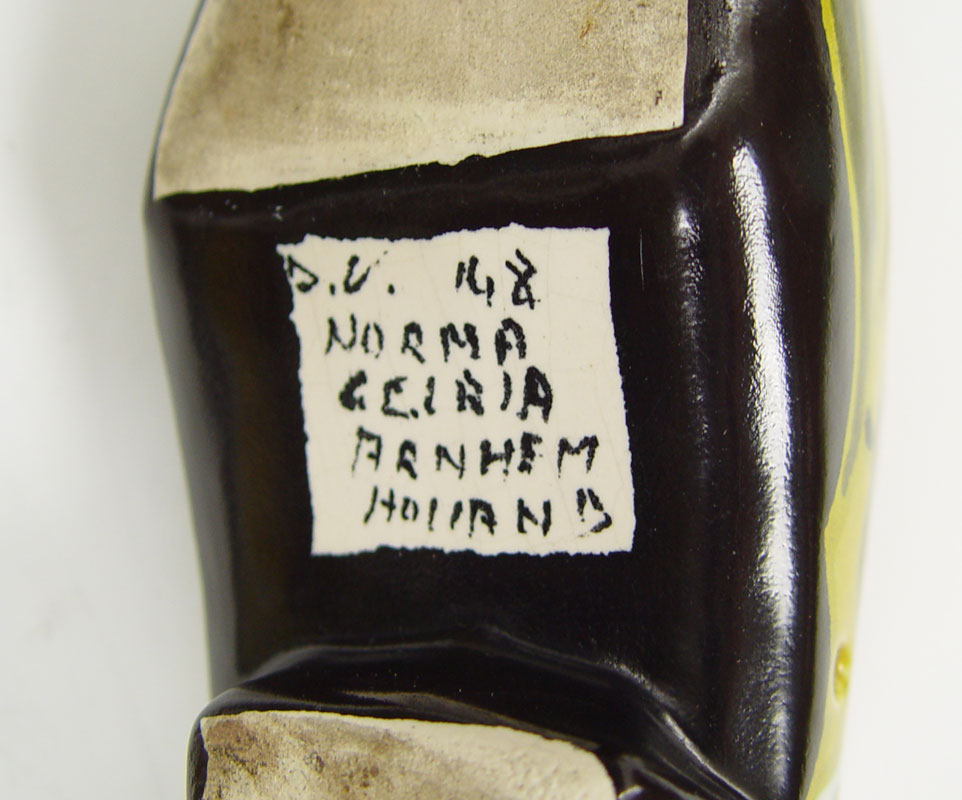 D.V. 148
NORMA
CEIRIA
ARNHEM
HOLLAND